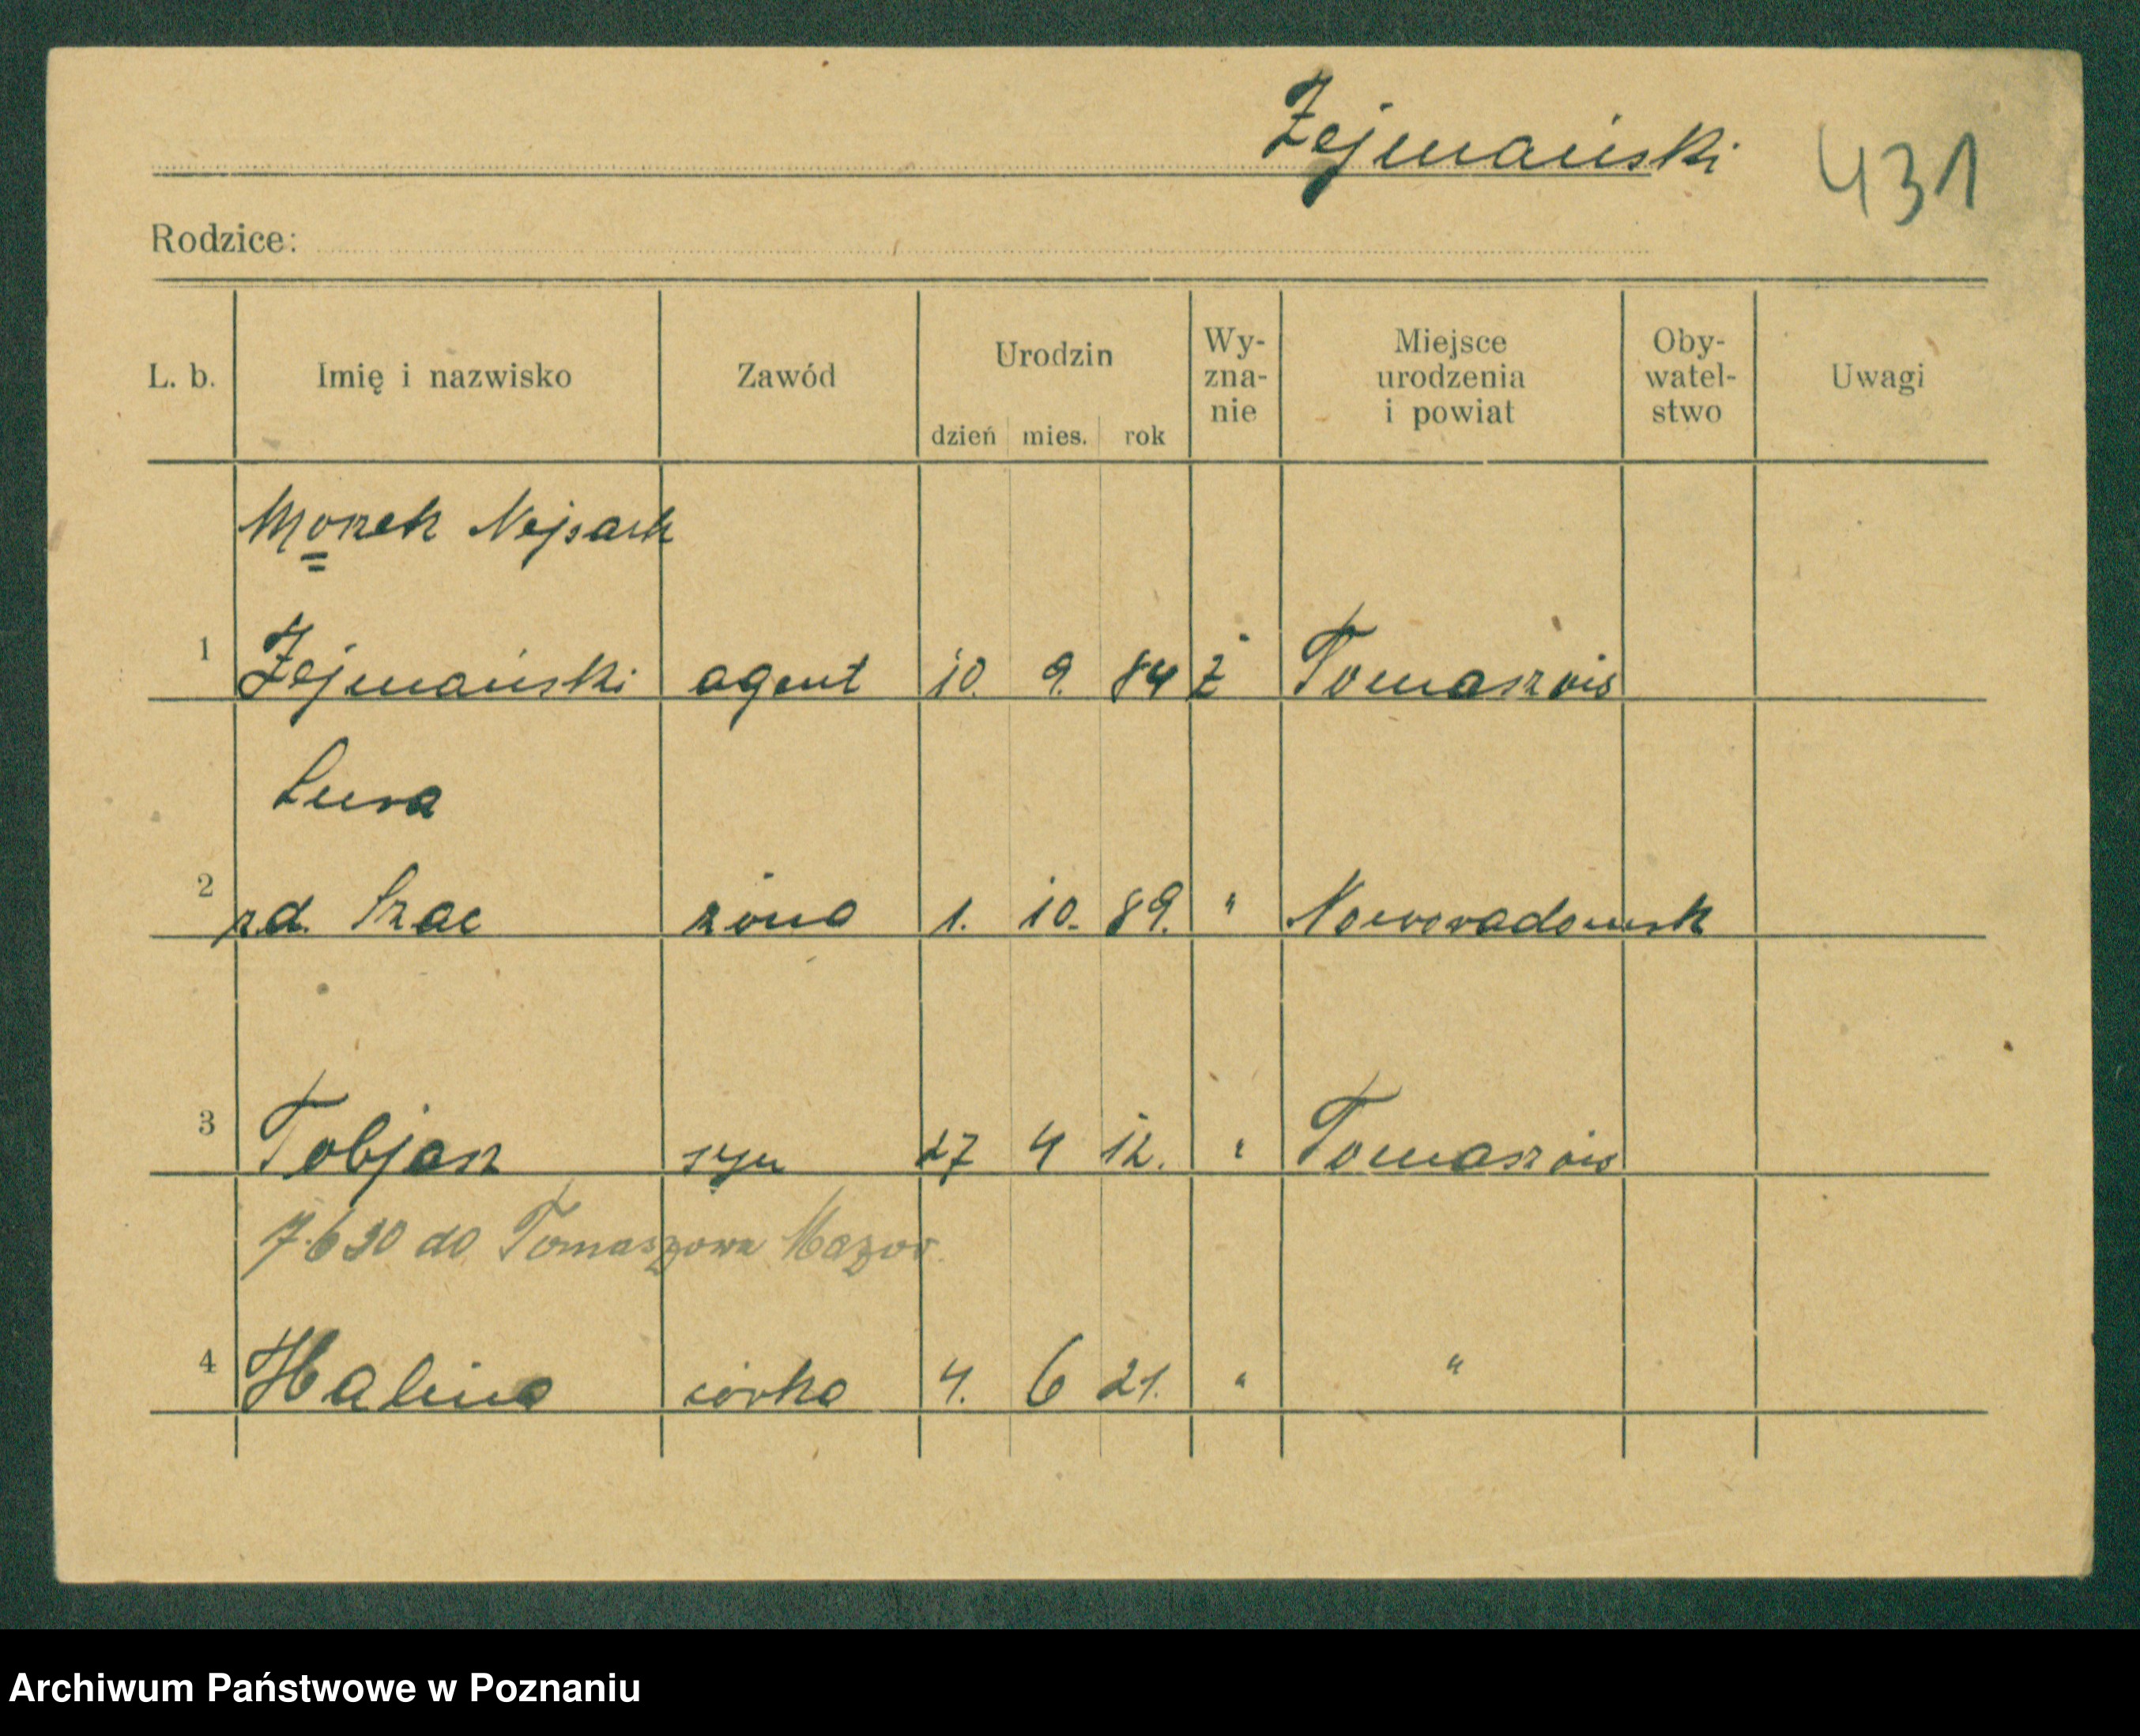 Zejmański 431
Rodzice:
L. b. Imię i nazwisko Zawód Urodzin Wy-zna-nie Miejsce urodzenia i powiat Oby-watel-stwo Uwagi
dzień mies. rok
Moszek
1 Zejmański agent 10. 9. 84 ż Tomaszów
Sura
2 z d. Szac żona 1. 10. 89. " Noworadomsk
3 Tobjasz syn 27 4 12. " Tomaszów
7.6 30 do Tomaszowa Mazow.
4 Halina córka 4. 6 21. " "
Archiwum Państwowe w Poznaniu